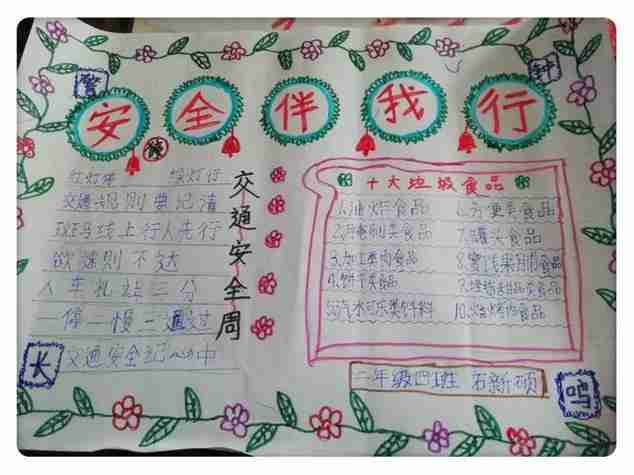 警 钟
安全伴我行
红灯停 绿灯行
交通规则要记清
斑马线上行人先行
欲速则不达
一停二慢三通过
交通安全记心中
交通安全周
十大垃圾食品
1.油炸食品
2.腌制类食品
3.加工类肉食品
4.饼干类食品
5.汽水可乐类饮料
6.方便类食品
7.罐头食品
8.蜜饯果脯食品
10.烧烤类食品
二年级四班 石新硕
长 鸣